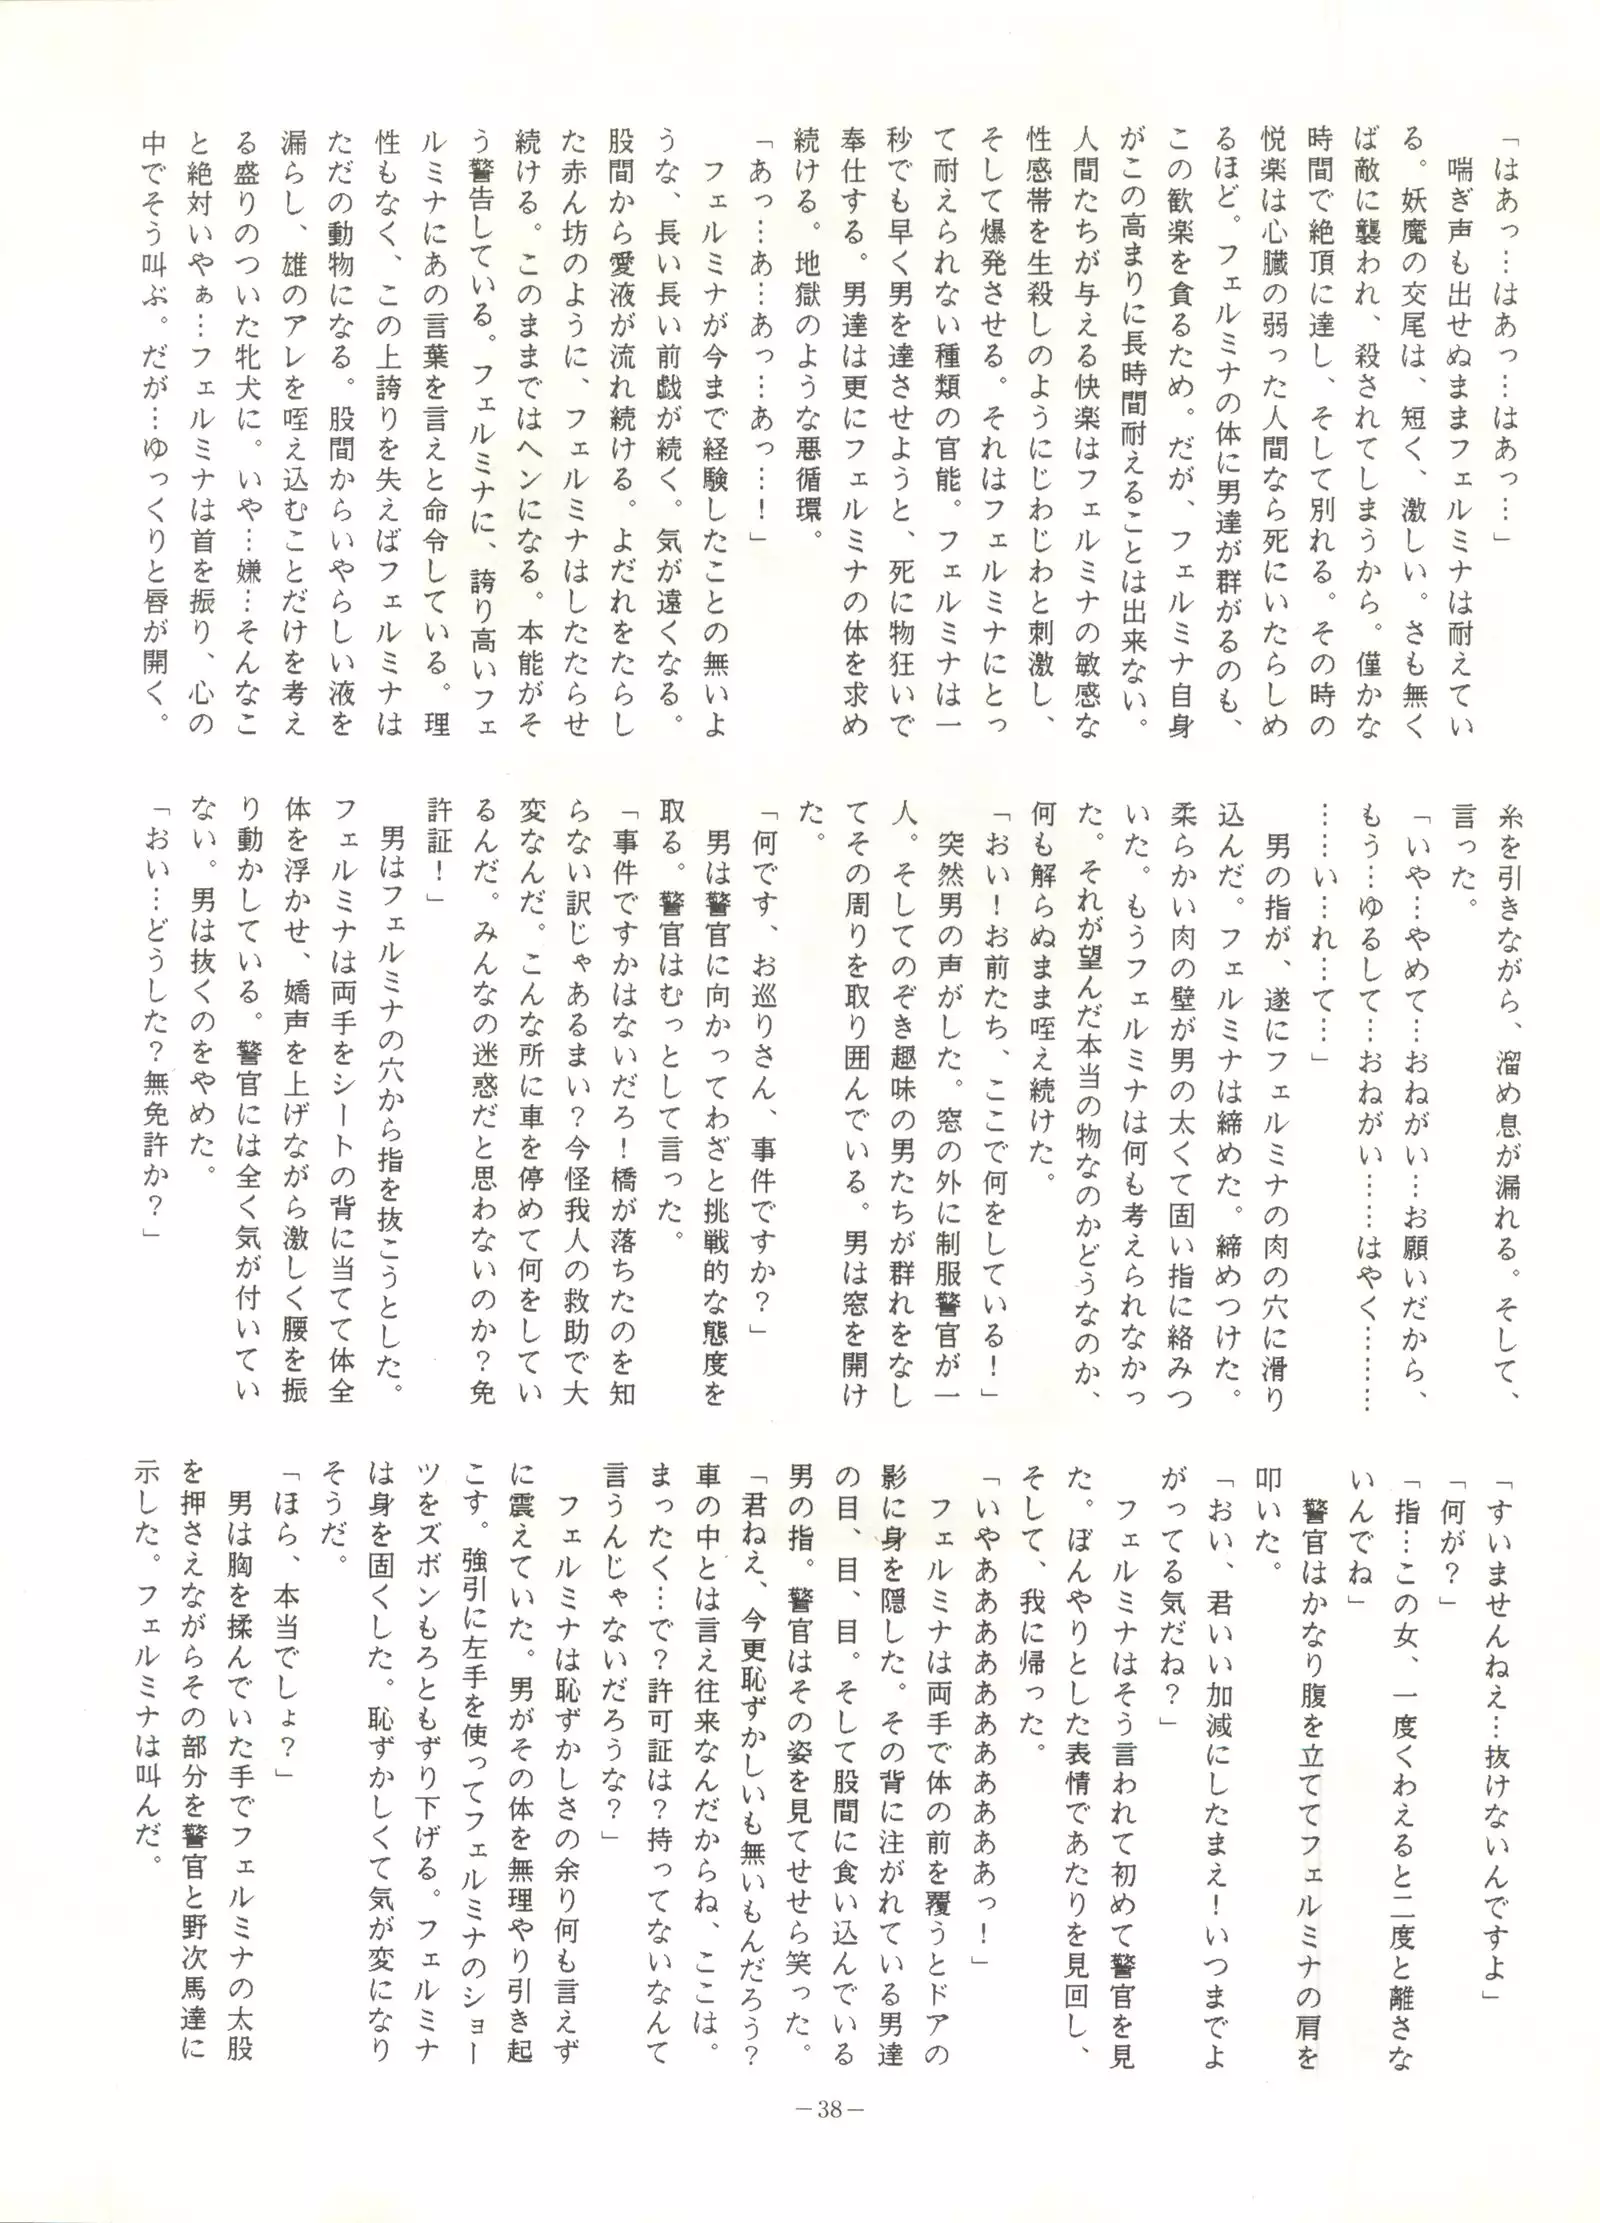 「はあっ…はあっ…はあっ…」
　喘ぎ声も出せぬままフェルミナは耐えてい
る。妖魔の交尾は、短く、激しい。さも無く
ば敵に襲われ、殺されてしまうから。僅かな
時間で絶頂に達し、そして別れる。その時の
悦楽は心臓の弱った人間なら死にいたらしめ
るほど。フェルミナの体に男達が群がるのも、
この歓楽を貪るため。だが、フェルミナ自身
がこの高まりに長時間耐えることは出来ない。
人間たちが与える快楽はフェルミナの敏感な
性感帯を生殺しのようにじわじわと刺激し、
そして爆発させる。それはフェルミナにとっ
て耐えられない種類の官能。フェルミナは一
秒でも早く男を達させようと、死に物狂いで
奉仕する。男達は更にフェルミナの体を求め
続ける。地獄のような悪循環。
「あっ…あ…あっ…あっ…！」
　フェルミナが今まで経験したことの無いよ
うな、長い長い前戯が続く。気が遠くなる。
股間から愛液が流れ続ける。よだれをたらし
た赤ん坊のように、フェルミナはしたたらせ
続ける。このままではヘンになる。本能がそ
う警告している。フェルミナに、誇り高いフェ
ルミナにあの言葉を言えと命令している。理
性もなく、この上誇りを失えばフェルミナは
ただの動物になる。股間からいやらしい液を
漏らし、雄のアレを咥え込むことだけを考え
る盛りのついた牝犬に。いや…嫌…そんなこ
と絶対いやぁ…フェルミナは首を振り、心の
中でそう叫ぶ。だが…ゆっくりと唇が開く。
糸を引きながら、溜め息が漏れる。そして、
言った。
「いや…やめて…おねがい…お願いだから、
もう…ゆるして…おねがい……はやく………
……い…れ…て…」
　男の指が、遂にフェルミナの肉の穴に滑り
込んだ。フェルミナは締めた。締めつけた。
柔らかい肉の壁が男の太くて固い指に絡みつ
いた。もうフェルミナは何も考えられなかっ
た。それが望んだ本当の物なのかどうなのか、
何も解らぬまま咥え続けた。
「おい！お前たち、ここで何をしている！」
　突然男の声がした。窓の外に制服警官が一
人。そしてのぞき趣味の男たちが群れをなし
てその周りを取り囲んでいる。男は窓を開け
た。
「何です、お巡りさん、事件ですか？」
　男は警官に向かってわざと挑戦的な態度を
取る。警官はむっとして言った。
「事件ですかはないだろ！橋が落ちたのを知
らない訳じゃあるまい？今怪我人の救助で大
変なんだ。こんな所に車を停めて何をしてい
るんだ。みんなの迷惑だと思わないのか？免
許証！」
　男はフェルミナの穴から指を抜こうとした。
フェルミナは両手をシートの背に当てて体全
体を浮かせ、嬌声を上げながら激しく腰を振
り動かしている。警官には全く気が付いてい
ない。男は抜くのをやめた。
「おい…どうした？無免許か？」
「すいませんねえ…抜けないんですよ」
「何が？」
「指…この女、一度くわえると二度と離さな
いんでね」
　警官はかなり腹を立ててフェルミナの肩を
叩いた。
「おい、君いい加減にしたまえ！いつまでよ
がってる気だね？」
　フェルミナはそう言われて初めて警官を見
た。ぼんやりとした表情であたりを見回し、
そして、我に帰った。
「いやああああああああああああっ！」
　フェルミナは両手で体の前を覆うとドアの
影に身を隠した。その背に注がれている男達
の目、目、目、目。そして股間に食い込んでいる
男の指。警官はその姿を見てせせら笑った。
「君ねえ、今更恥ずかしいも無いもんだろう？
車の中とは言え往来なんだからね、ここは。
まったく…で？許可証は？持ってないなんて
言うんじゃないだろうな？」
　フェルミナは恥ずかしさの余り何も言えず
に震えていた。男がその体を無理やり引き起
こす。強引に左手を使ってフェルミナのショー
ツをズボンもろともずり下げる。フェルミナ
は身を固くした。恥ずかしくて気が変になり
そうだ。
「ほら、本当でしょ？」
　男は胸を揉んでいた手でフェルミナの太股
を押さえながらその部分を警官と野次馬達に
示した。フェルミナは叫んだ。
―38―